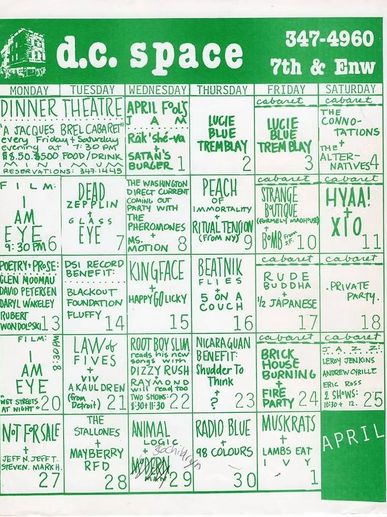 d.c. space
347-4960
7th & Enw
MONDAY TUESDAY WEDNESDAY THURSDAY FRIDAY SATURDAY
DINNER THEATRE
"A JACQUES BREL CABARET"
every Friday & Saturday
evening at 7:30 PM
$9.50. $5.00 FOOD/DRINK
MINIMUM
RESERVATIONS 347.1445
APRIL FOOLS
JAM
Råk'-shé-va
SATAN'S
BURGER
1
LUCIE
BLUE
TREMBLAY
2
cabaret
LUCIE
BLUE
TREMBLAY
3
cabaret
THE
CONNO-
TATIONS
+
THE
ALTER-
NATIVES
4
FILM:
I
AM
EYE
9:30 PM
6
DEAD
ZEPPLIN
+
GLASS
EYE
7
THE WASHINGTON
DIRECT CURRENT
COMING OUT
PARTY WITH
THE
PHEROMONES
+
MS.
MOTION
8
PEACH
OF
IMMORTALITY
+
RITUAL TENSION
(From NY)
9
cabaret
STRANGE
BOUTIQUE
(FORMERLY MADHOUSE)
+
BOMB
10
cabaret
HYAA!
+
XIO
11
POETRY + PROSE:
GLEN MOOMAU
DAVID PETERSEN
DARYL WAKELEY
RUPERT
WONDOLSKI
13
DSI RECORD
BENEFIT:
BLACKOUT
FOUNDATION
FLUFFY
14
KINGFACE
+
HAPPY GO LICKY
15
BEATNIK
FLIES
+
5 ON A
COUCH
16
cabaret
RUDE
BUDDHA
+
1/2 JAPANESE
17
cabaret
PRIVATE
PARTY.
18
FILM:
8:30 PM
I
AM
EYE
WET STREETS
AT NIGHT
20
LAW OF
FIVES
+
VIV
AKAULDREN
(from
Detroit)
21
ROOT BOY SLIM
reads his new
songs with
DIZZY RUSH
RAYMOND
will read too
TWO SHOWS:
8:30 + 11:30
22
NICARAGUAN
BENEFIT:
Shudder To
Think
+
?
23
cabaret
BRICK
HOUSE
BURNING
+
FIRE
PARTY
24
JAZZ:
LEROY JENKINS
ANDREW CYRILLE
ERIC ROSS
2 SHOWS:
10:30 + 12.
25
NOT FOR SALE
+
JEFF N. JEFF T.
STEVEN. MARK H.
27
THE
STALLONES
+
MAYBERRY
RFD
28
ANIMAL
LOGIC
+
MODERN
MAN
29
RADIO BLUE
+
98 COLOURS
30
MUSKRATS
+
LAMBS EAT
IVY
1
APRIL